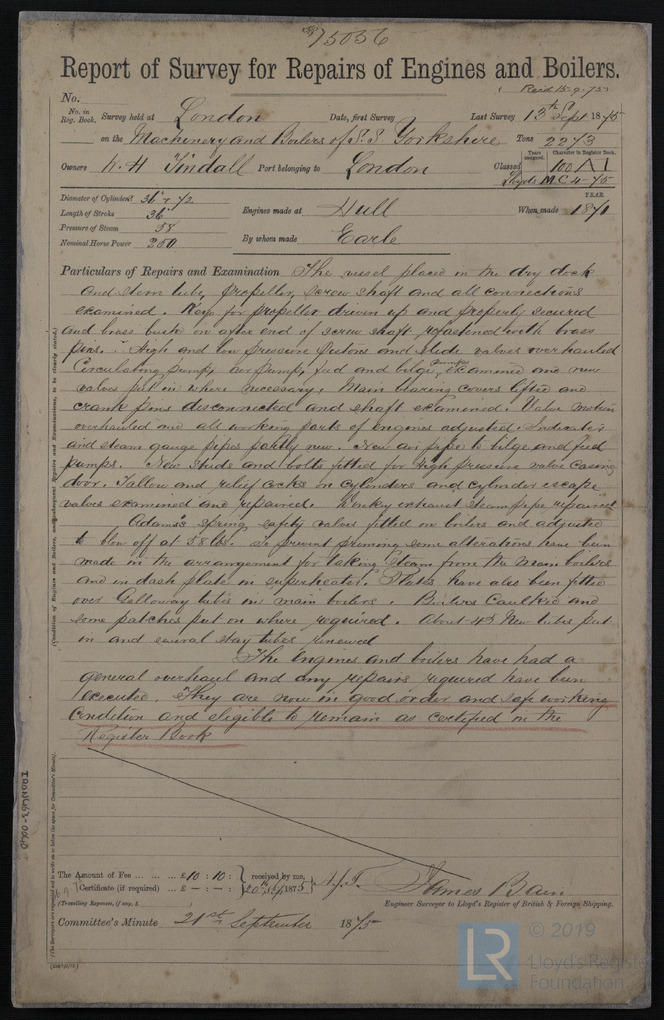 75036
Report of Survey for Repairs of Engines and Boilers.
Recd 15.9.75
No.
No. in Reg. Book. Survey held at London Date, first Survey Last Survey 13th Sept 1875
on the Machinery and Boilers of S.S. Yorkshire Tons 2273
Owners W. H. Tindall Port belonging to London Classed
Years assigned. Character in Register Book.
100 A1
Lloyds M.C. 4-75
Diameter of Cylinders 36 & 72
Length of Stroke 36
Pressure of Steam 58
Nominal Horse Power 250
Engines made at Hull
By whom made Earle
YEAR
When made 1871
Particulars of Repairs and Examination The vessel placed in the dry dock
and stern tube, propeller, screw shaft and all connections
examined. Key for propeller driven up and properly secured
and brass bush on after end of screw shaft refastened with brass
pins. High and low pressure Pistons and slide valves overhauled
Circulating pump, air pump, feed and bilge pumps examined and new
valves put in where necessary. Main bearing covers lifted and
crank pins disconnected and shaft examined. Valve motion
overhauled and all working parts of engines adjusted. Indicator
and steam gauge pipes partly new. New air pipes to bilge and feed
pumps. New studs and bolts fitted for High pressure valve casing
door. Tallow and relief cocks on cylinders and cylinder escape
valves examined and repaired. Donkey exhaust steam pipe repaired
Adams's spring safety valves fitted on boilers and adjusted
to blow off at 58 lbs. To prevent priming some alterations have been
made in the arrangement for taking steam from the main boilers
and in dash plate in superheater. Plates have also been fitted
over Galloway tubes in main boilers. Boilers Caulked and
some patches put on where required. About 45 New tubes put
in and several stay tubes renewed
The Engines and boilers have had a
general overhaul and any repairs required have been
executed. They are now in good order and safe working
Condition and eligible to remain as certified in the
Register Book
The Amount of Fee ... ... ... £10 : 10 : received by me,
Certificate (if required) ... £ - : - : 20th Sep 1875
(Travelling Expenses, if any, £
James Bain
Engineer Surveyor to Lloyd's Register of British & Foreign Shipping.
Committee's Minute 21st September 1875
IRON463-0040
© 2019
LR
Lloyd's Register
Foundation